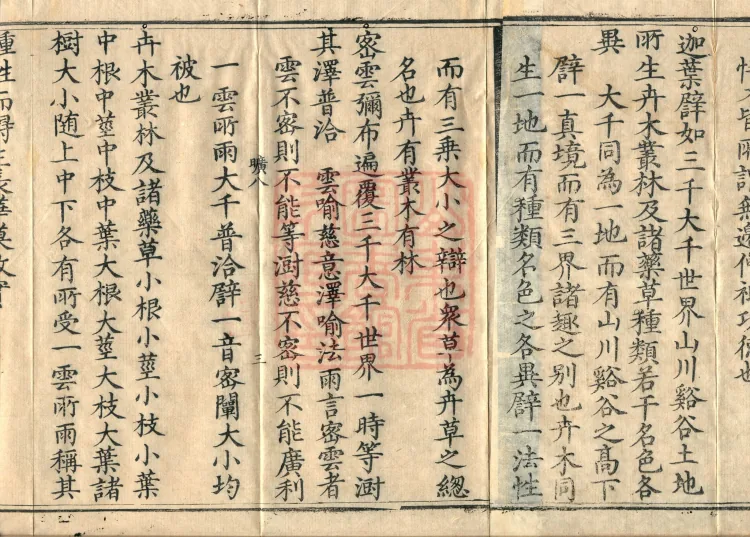 無邊功德也
迦葉譬如三千大千世界山川谿谷土地
所生卉木叢林及諸藥草種類若干名色各
異　大千同為一地而有山川谿谷之高下
譬一真境而有三界諸趣之别也卉木同
生一地而有種類名色之各異譬一法性
而有三乗大小之辯也衆草為卉草之總
名也卉有叢木有林
密雲彌布遍覆三千大千世界一時等澍
其澤普洽　雲喻慈意澤喻法雨言密雲者
雲不密則不能等澍慈不密則不能廣利
曠八　三
一雲所雨大千普洽譬一音密闡大小均
被也
卉木叢林及諸藥草小根小莖小枝小葉
中根中莖中枝中葉大根大莖大枝大葉諸
樹大小随上中下各有所受一雲所雨稱其
種性而得生長華菓敷實